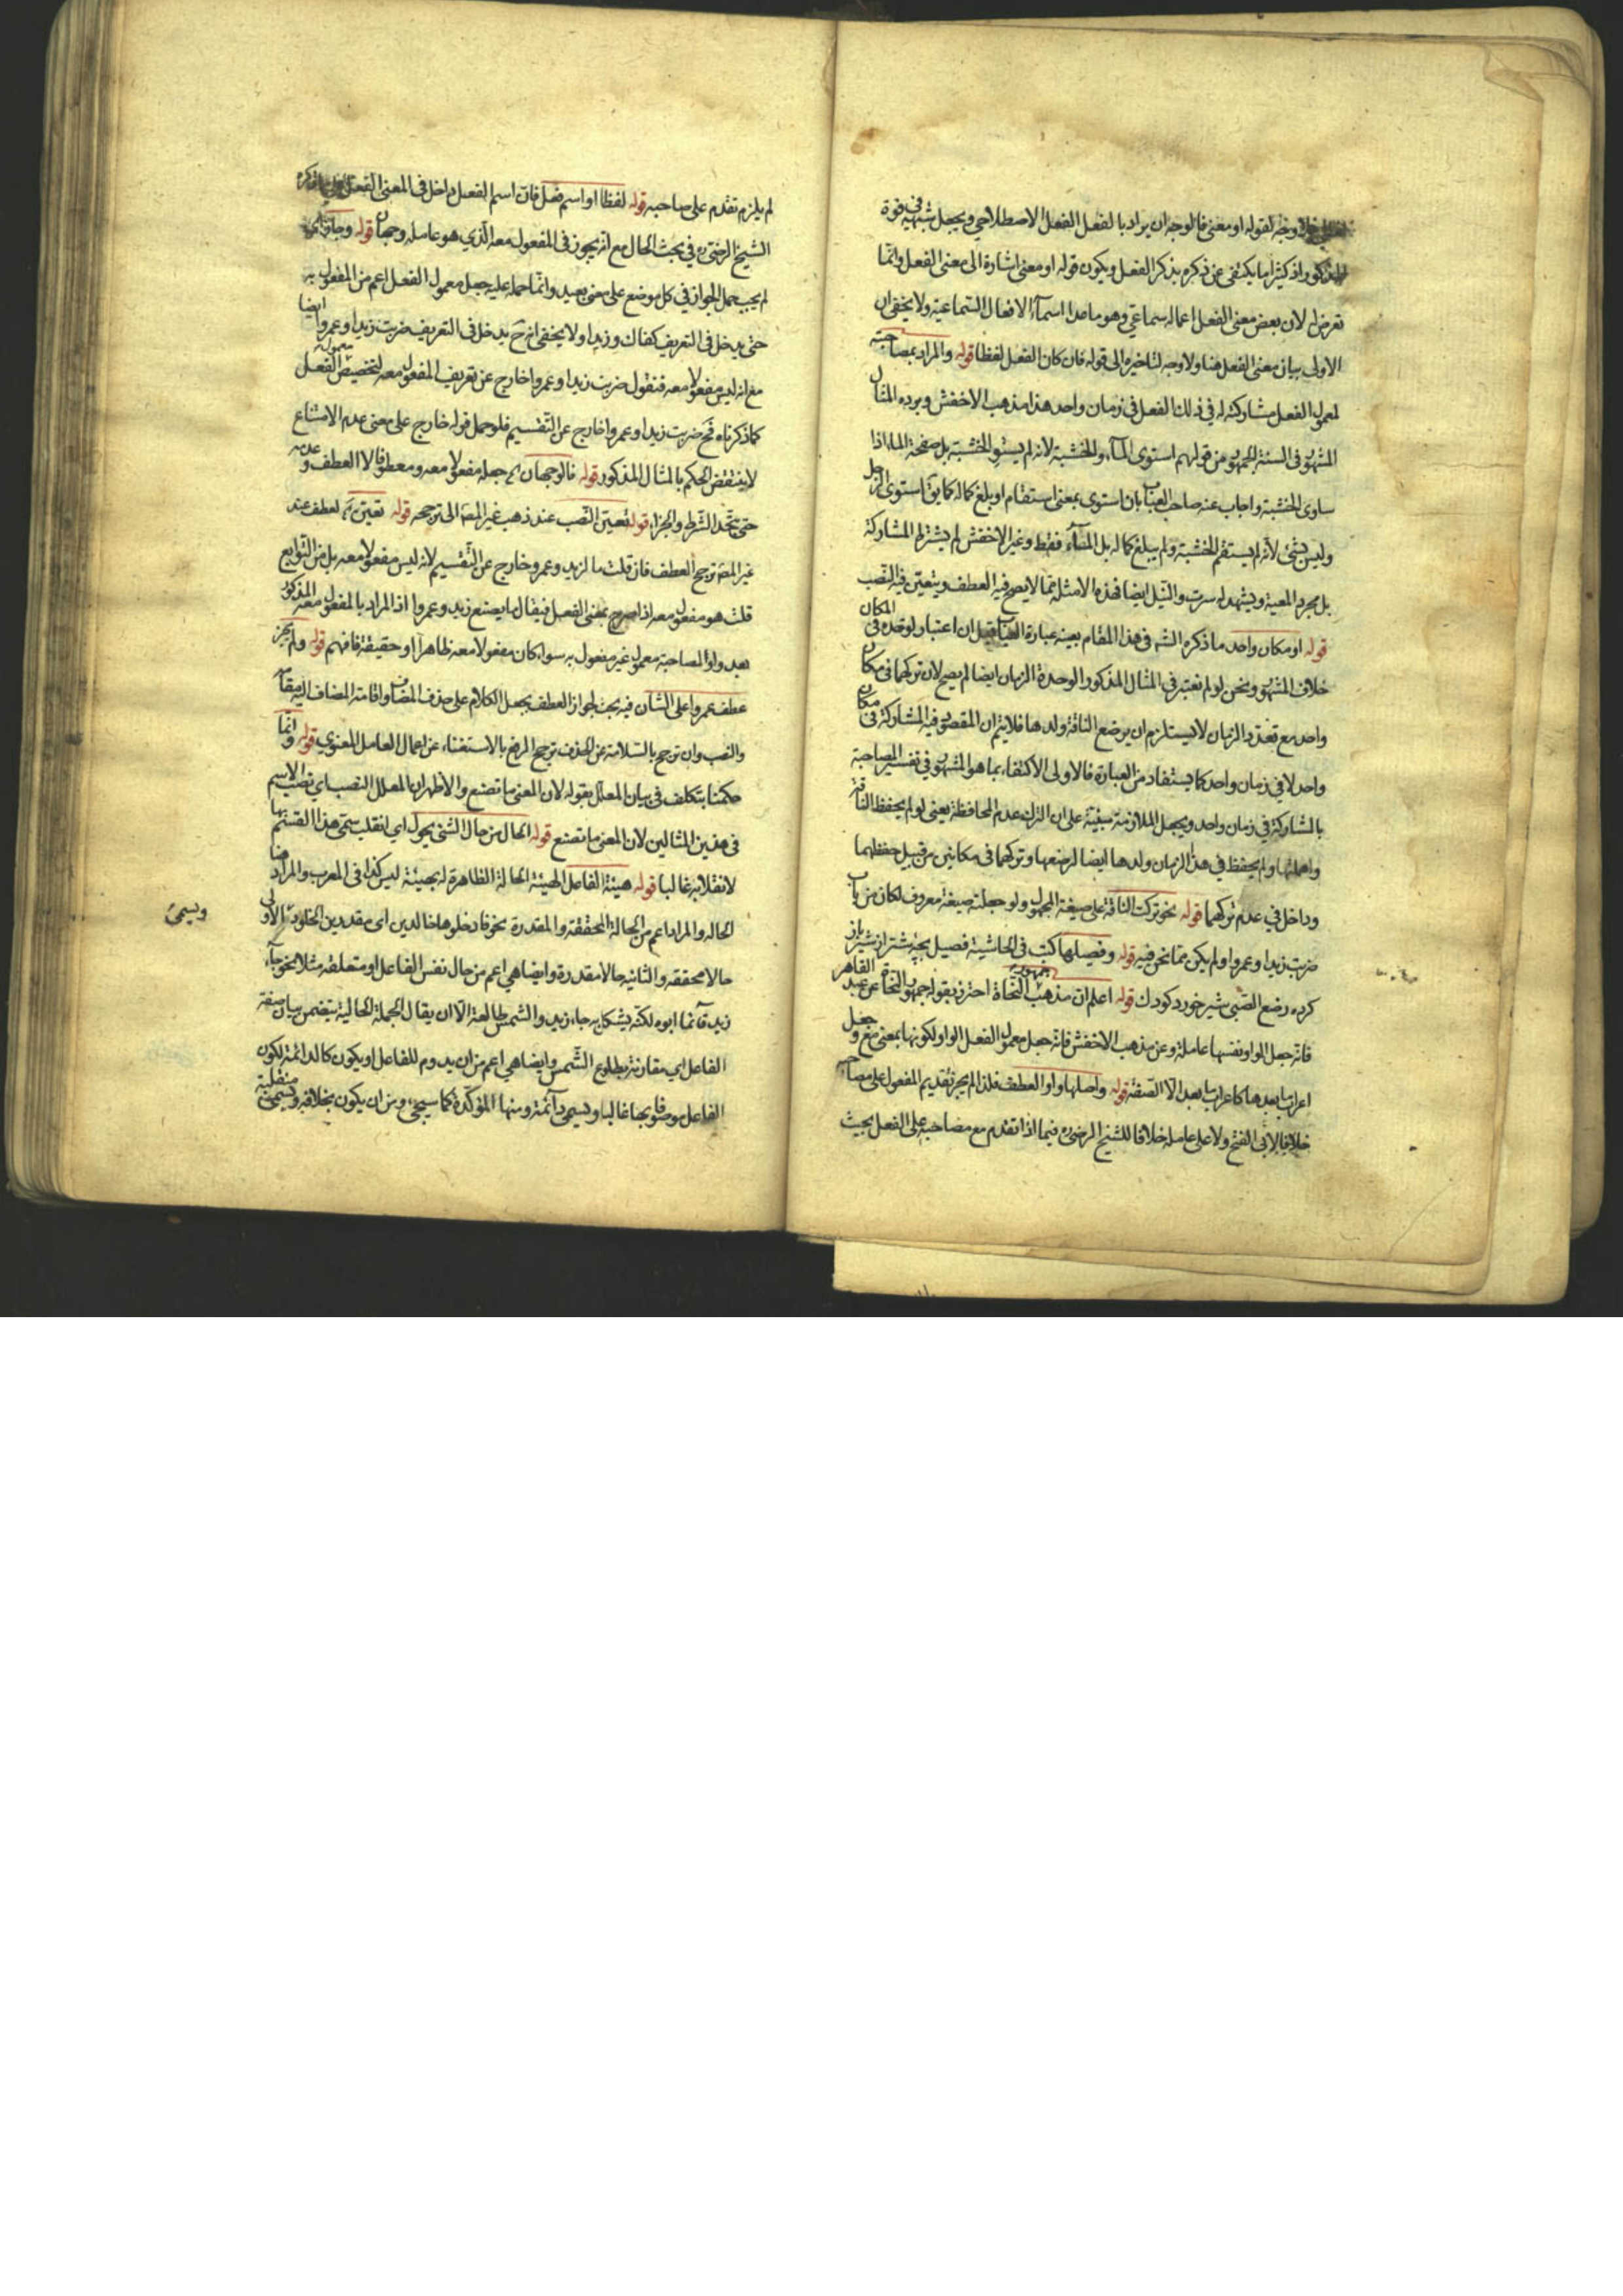 فلا وجه لقوله او معنى فالوجه ان يراد بالفعل الفعل الاصطلاحي ويجعل شبهه في قوة
المذكور اذ كثيرا ما يكتفى عن ذكره بذكر الفعل ويكون قوله او معنى اشارة الى معنى الفعل وانما
تعرض له لان بعض معنى الفعل اعماله سماعي وهو ما عدا اسماء الافعال السماعية ولا يخفى ان
الاولى بيان معنى الفعل هنا ولا وجه لتاخيره الى قوله فان كان الفعل لفظا قوله والمراد بمصاحبته
لمعمول الفعل مشاركته له في ذلك الفعل في زمان واحد هذا مذهب الاخفش ويرده المثال
المشهور في السنة الجمهور من قولهم استوى الماء والخشبة لانه لم يستو الخشبة بل صفحة الماء اذا
ساوى الخشبة واجاب عنه صاحب العباب بان استوى بمعنى استقام او بلغ كماله كما يق استوى الرجل
وليس بشئ لانه لم يستقم الخشبة ولم يبلغ كماله بل الماء فقط وغير الاخفش لم يشترط المشاركة
بل مجرد المعية ويشهد له سرت والنيل ايضا فهذه الامثلة مما لا يصح فيه العطف ويتعين فيه النصب
قوله او مكان واحد ما ذكره الشه في هذا المقام بعينه عبارة العباب قيل ان اعتبار الوحدة في المكان
خلاف المشهور ونحن لو لم نعتبر في المثال المذكور الوحدة الزمان ايضا لم يصح لان تركهما في مكان
واحد مع تعدد الزمان لا يستلزم ان يرضع الناقة ولدها فلا يتم ان المقصود فيه المشاركة في مكان
واحد لا في زمان واحد كما يستفاد من العبارة فالاولى الاكتفاء بما هو المشهور في تفسير المصاحبة
بالمشاركة في زمان واحد ويجعل الملازمة مبنية على ان الترك عدم المحافظة يعنى لو لم يحفظ الناقة
واهملها ولم يحفظ في هذا الزمان ولدها ايضا لرضعها وتركهما في مكانين من قبيل حفظهما
وداخل في عدم تركهما قوله نحو تركت الناقة على صيغة المجهول ولو جعلته صيغة معروف لكان من باب
ضربت زيدا وعمروا ولم يكن مما نحن فيه قوله وفصيلها كتب في الحاشية فصيل بچه شتر از شير باز
كرده رضع الصبى شير خورد كودك قوله اعلم ان مذهب جمهور النحاة احترز بقوله جمهور النحاة عن عبد القاهر
فانه جعل الواو نفسها عاملة وعن مذهب الاخفش فانه جعل معمول الفعل الواو لكونها بمعنى مع وجعل
اعراب ما بعدها كاعراب ما بعد الا الصفة قوله واصلها واو العطف فلذا لم يجز تقديم المفعول على مصاحبه
خلافا لابى الفتح ولا على عامله خلافا للشيخ الرضى ره فيما اذا تقدم مع مصاحبه على الفعل بحيث
لم يلزم تقدم على صاحبه قوله لفظا او اسم فعل فان اسم الفعل داخل في المعنى الفعل ذكره
الشيخ الرضى ره في بحث الحال مع انه يجوز في المفعول معه الذي هو عامله وجهان قوله وجاز
لم يجب حمل الجواز في كل موضع على معنى بعيد وانما حمله عليه جعل معمول الفعل اعم من المفعول به
حتى يدخل في التعريف كفاك وزيدا ولا يخفى انه ح يدخل في التعريف ضربت زيدا وعمروا ايضا
مع انه ليس مفعولا معه فنقول ضربت زيدا وعمروا خارج عن تعريف المفعول معه لتخصيص معمول الفعل
كما ذكرناه فح ضربت زيدا وعمروا خارج عن التقسيم فلو حمل قوله خارج على معنى عدم الامتناع
لا ينتقض الحكم بالمثال المذكور قوله فالوجهان اى جعله مفعولا معه ومعطوفا لا العطف وعدمه
حتى يتحد الشرط والجزاء قوله تعين النصب عند ذهب غير المصه الى ترجحه قوله تعين العطف عند
غير المصه ترجح العطف فان قلت ما لزيد وعمرو خارج عن التقسيم لانه ليس مفعولا معه بل من التوابع
قلت هو مفعول معه اذا صرح بمعنى الفعل فيقال ما يصنع زيد وعمروا اذ المراد بالمفعول معه المذكور
بعد واو المصاحبة معمول غير مفعول به سواء كان مفعولا معه ظاهرا او حقيقة فافهم قوله ولم يجز
عطف عمروا على الشان فيه بحث لجواز العطف بجعل الكلام على حذف المضاف واقامة المضاف اليه مقامه
والنصب وان ترجح بالسلامة عن الحذف ترجح الرفع بالاستغناء عن اعمال العامل المعنوي قوله وانما
حكمنا يتكلف في بيان المعلل بقوله لان المعنى ما تصنع والاظهر ان المعلل النصب اي نصب الاسم
في هذين المثالين لان المعنى ما تصنع قوله الحال من حال الشئ يحول اي انقلب سمى هذا القسم بها
لانقلابه غالبا قوله هيئة الفاعل الهيئة الحالة الظاهرة له بهيئة ليس كذا في المعرب والمراد هنا
الحاله والمراد اعم من الحالة المحققة والمقدرة نحو فادخلوها خالدين اى مقدرين الخلود الاولى
حالا محققه والثانيه حالا مقدرة وايضا هي اعم من حال نفس الفاعل او متعلقه مثلا نحو جاء
زيد قائما ابوه لكنه يشكل به جاء زيد والشمس طالعة الا ان يقال الجملة الحالية يتضمن بيان صفة
الفاعل اي مقارنة بطلوع الشمس وايضا هي اعم من ان يدوم للفاعل او يكون كالدائمة لكون
الفاعل موصوفا بها غالبا ويسمى دائمة ومنها المؤكدة كما سيجئ وبين ان يكون بخلافه ويسمى منتقلة
ويسمى